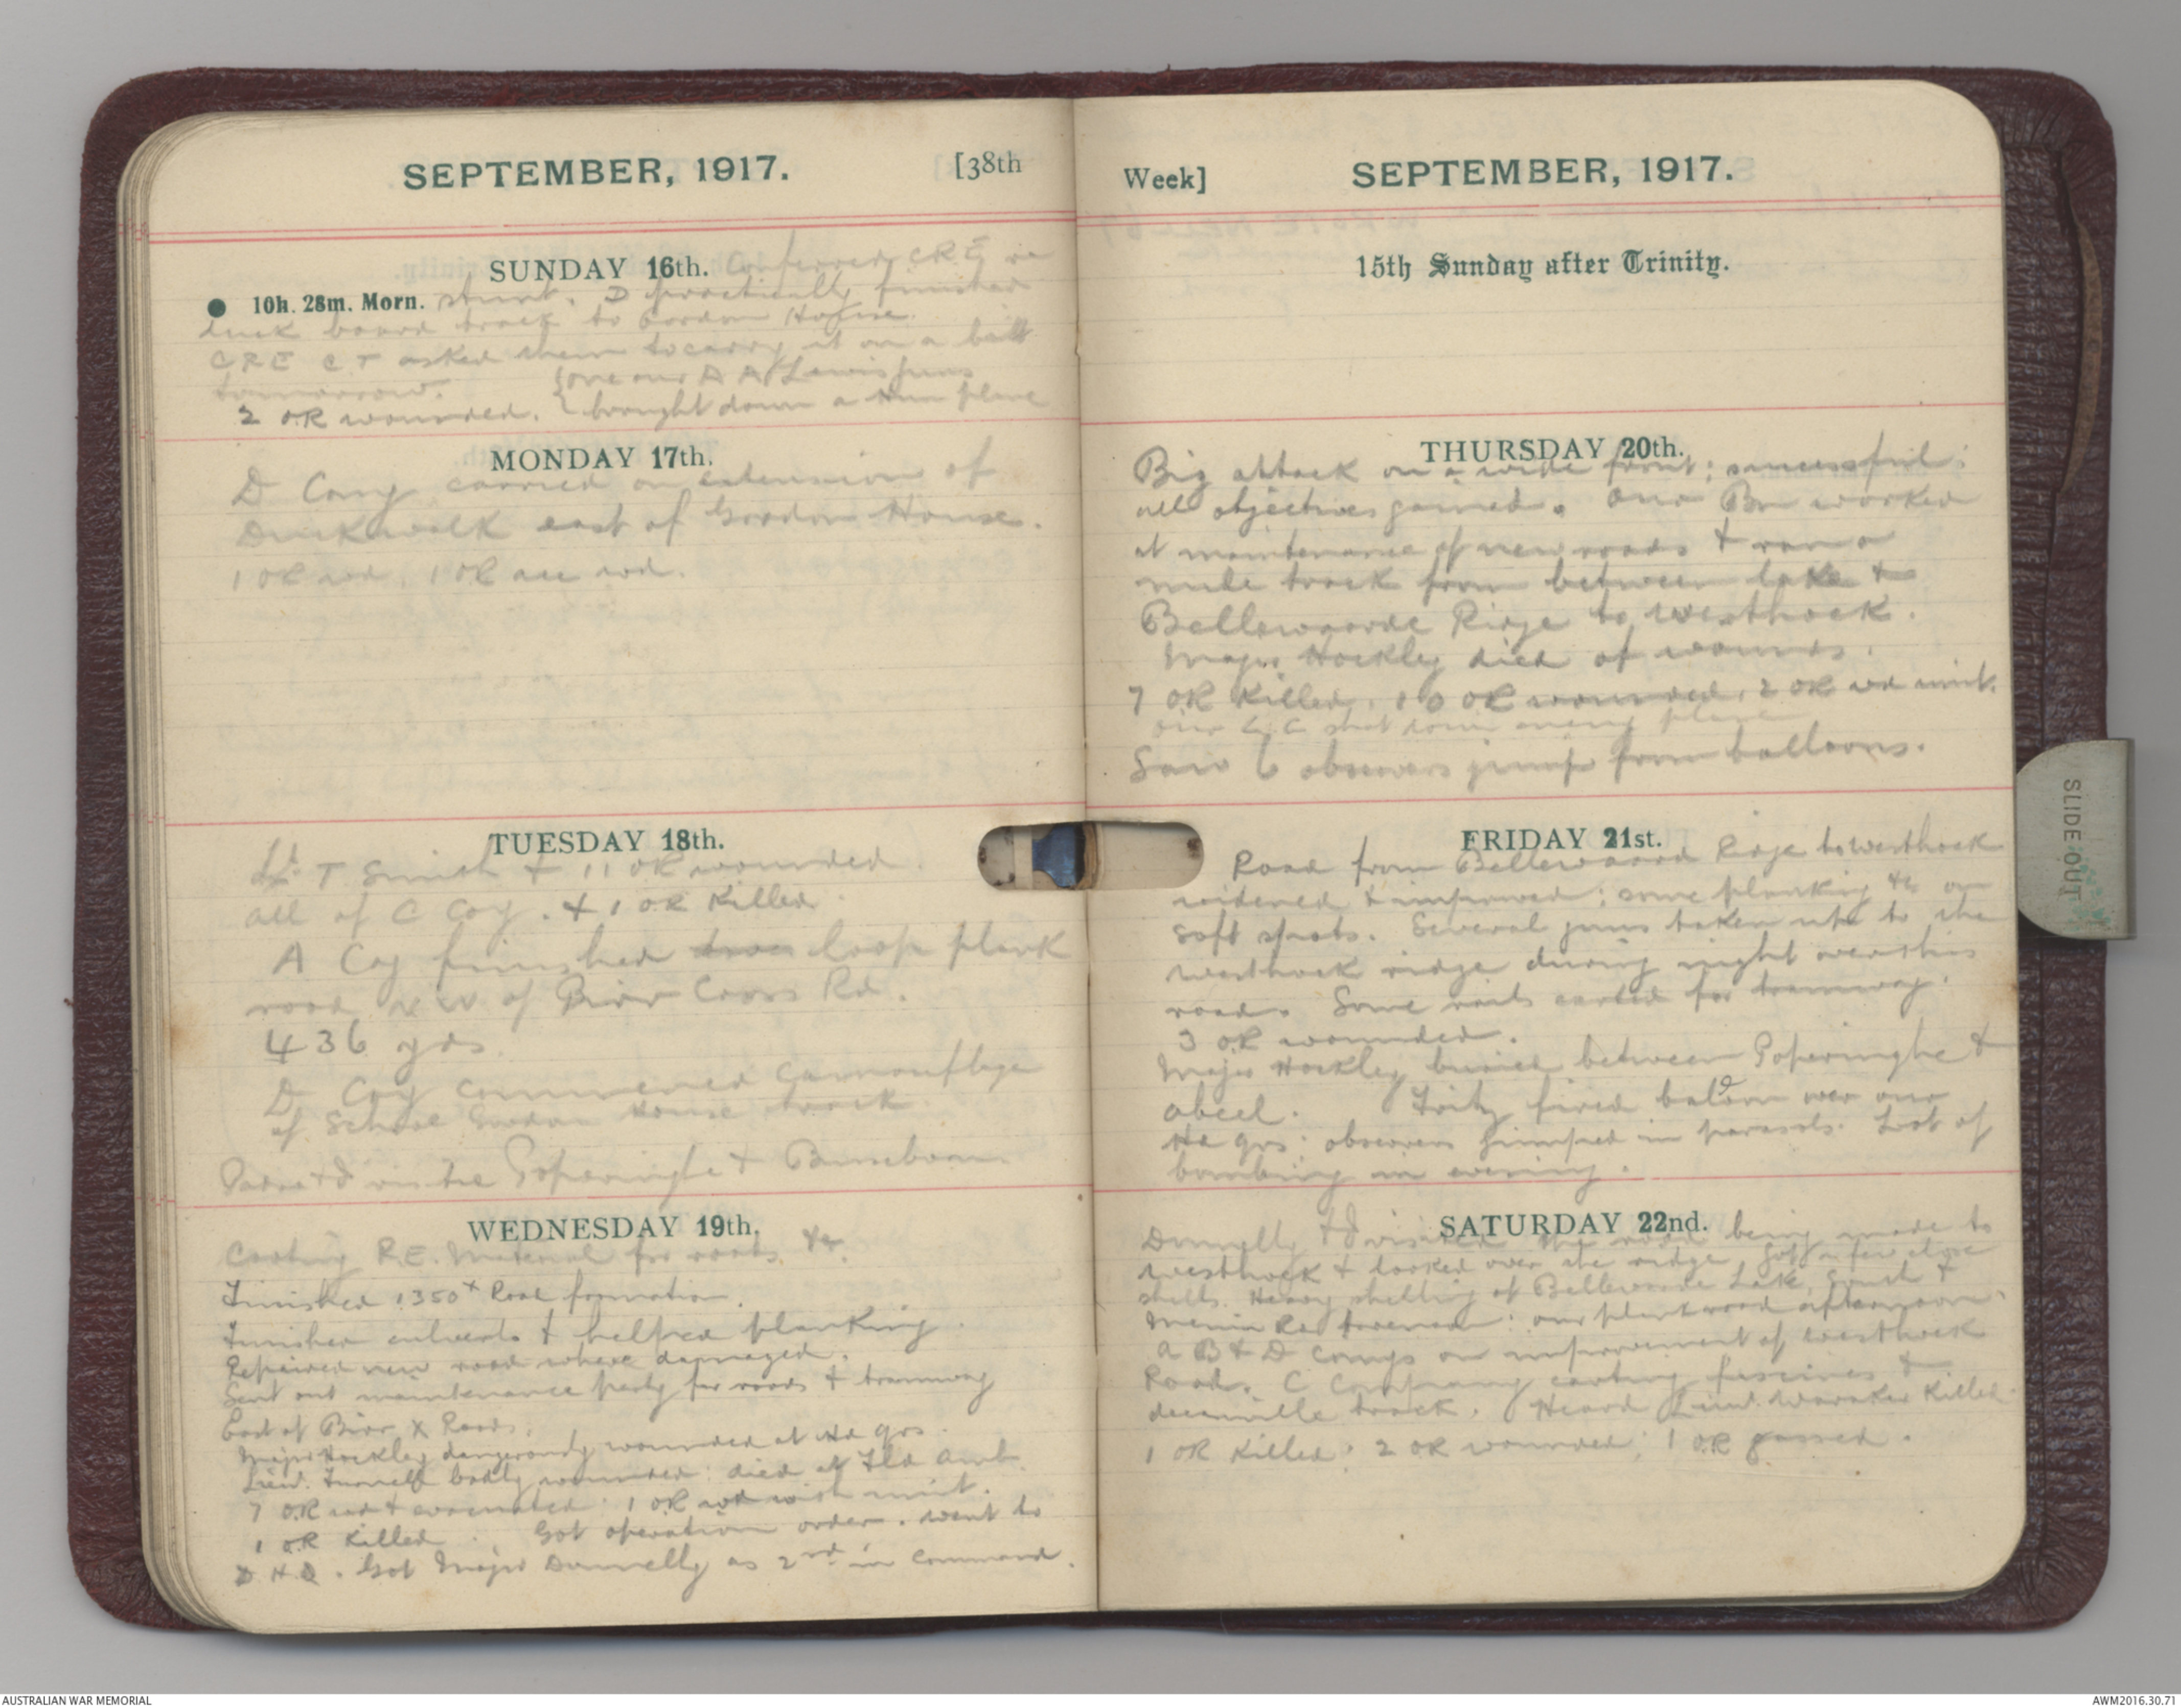 SEPTEMBER, 1917. [38th
SUNDAY 16th. Conferred CRE re
10h. 28m. Morn. stunt. D practically finished
duck board track to Gordon House.
CRE C T asked them to carry it on a bit
tomorrow. {one our A A Lewis guns
2 OR wounded. {brought down a Hun plane
MONDAY 17th.
D Coy carried on extension of
Duckwalk east of Gordon House.
1 OR wd. 1 OR acc wd.
TUESDAY 18th.
Lt T Smith & 11 OR wounded.
all of C Coy. & 1 OR Killed.
A Coy finished loop plank
road N W of Birr Cross Rd.
436 yds.
D Coy commenced camouflage
of School Gordon House track.
& I visited Poperinghe &
WEDNESDAY 19th.
Carting R.E. Material for roads &c.
Finished 1350x Road formation.
Finished culverts & helped planking.
Repaired new road where damaged.
Sent out maintenance party for roads & tramway
East of Birr X Roads.
Major Hockley dangerously wounded at Hd qrs.
Lieut. badly wounded: died at Fld Amb
7 OR wd & evacuated. 1 OR wd with unit.
1 OR Killed. Got operation order. went to
D H.Q. Got Major Donnelly as 2nd in command.
Week] SEPTEMBER, 1917.
15th Sunday after Trinity.
THURSDAY 20th.
Big attack on a wide front; successful;
all objectives gained. Our Bn worked
at maintenance of new roads & ran a
mule track from between lake &
Bellewaarde Ridge to Westhoek.
Major Hockley died of wounds.
7 OR Killed. 10 OR wounded. 2 OR wd unit.
our L.G. shot down enemy plane
Saw 6 observers jump from balloons.
FRIDAY 21st.
Road from Bellewaard Ridge to Westhoek
widened & improved; some planking &c on
soft spots. Several guns taken up to the
Westhoek ridge during night over this
road. Some rails carted for tramway.
3 OR wounded.
Major Hockley buried between Poperinghe &
Abeel. Fritz fired baloon over our
Hd qrs: observers jumped in parasols. Lot of
bombing in evening.
SATURDAY 22nd.
Donnelly & I visited the road being made to
Westhoek & looked over the ridge. Got a few close
shells. Heavy shelling of Bellewarde Lake, &
Menin Rd forenoon: our plank road afternoon.
A B & D Compys on improvement of Westhoek
Road. C Company carting fascines &
decauville track. Heard Lieut. Waraker Killed.
1 OR Killed; 2 OR wounded; 1 OR gassed.
SLIDE OUT
AUSTRALIAN WAR MEMORIAL
AWM2016.30.71